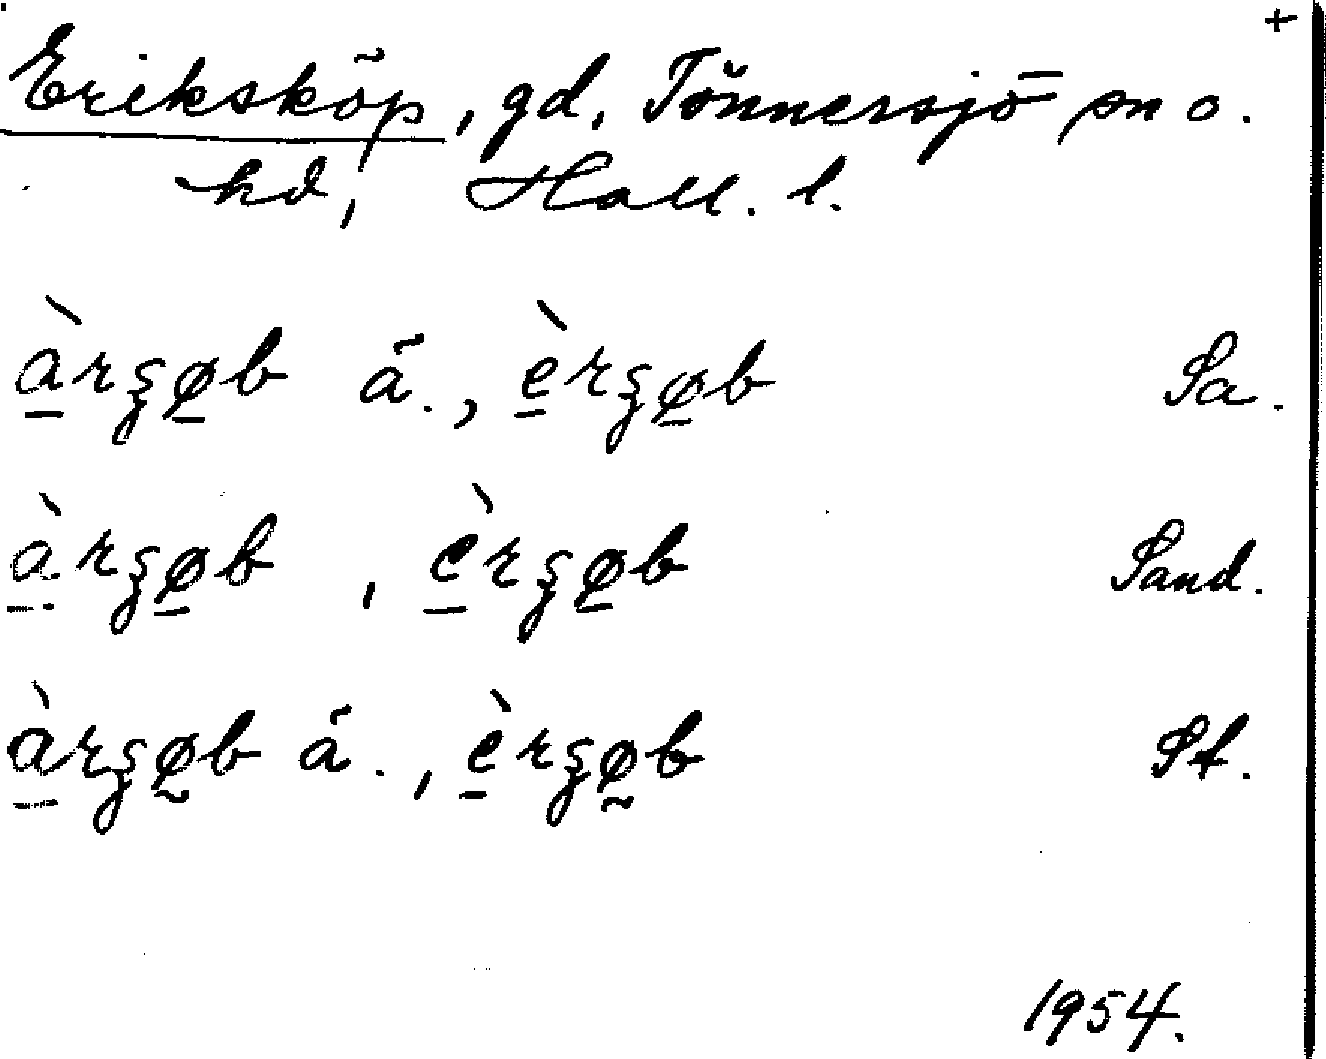 +
Eriksköp, gd, Tönnersjö sn o.
hd, Hall. l.
à̱rʂø̱b ä., è̱rʂø̱b Sa.
à̱rʂø̱b , è̱rʂø̱b Sand.
à̱rʂø̰b ä., è̱rʂø̰b St.
1954.